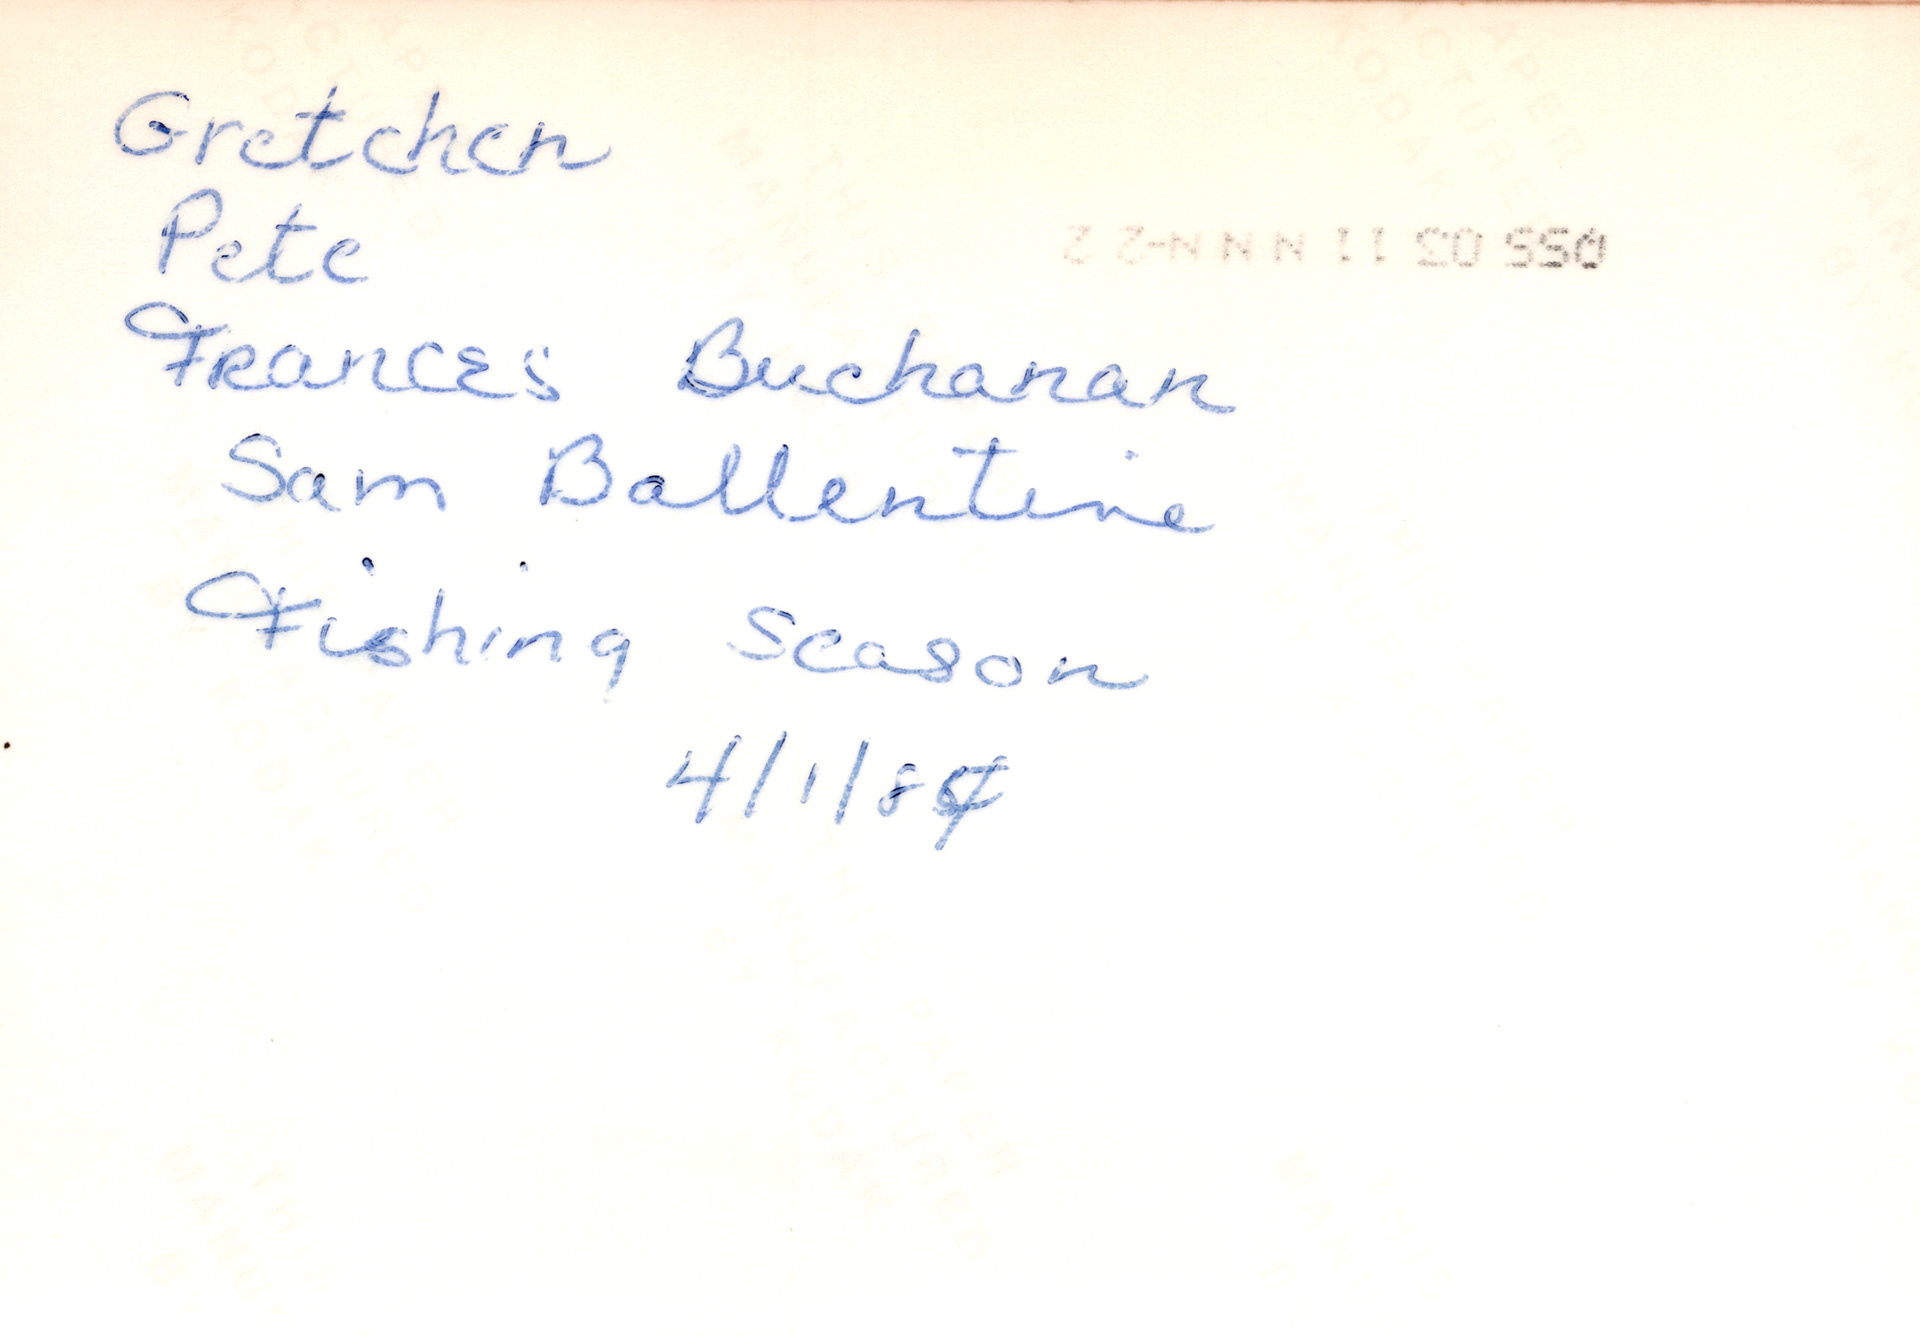 Gretchen
Pete
055 03 11 NNN-22
Frances Buchanan
Sam Ballentine
Fishing Season
4/1/84